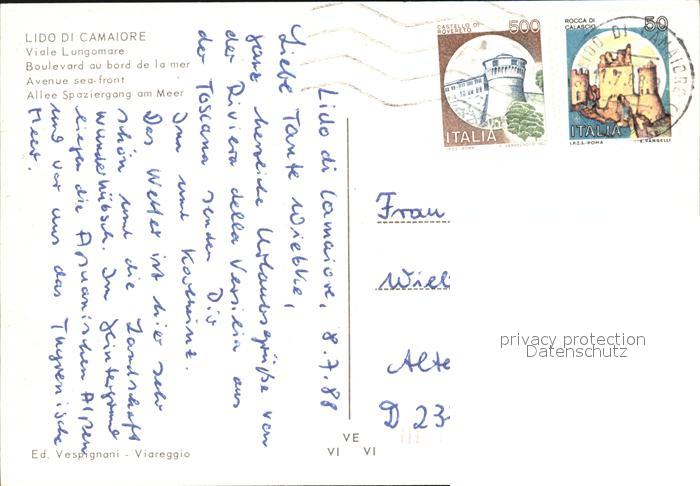 LIDO DI CAMAIORE
Viale Lungomare
Boulevard au bord de la mer
Avenue sea-front
Allee Spaziergang am Meer
CASTELLO DI
ROVERETO
500
ITALIA
I.P.Z.S.-ROMA
ROCCA DI
CALASCIO
50
ITALIA
I.P.Z.S.-ROMA E. VANGELLI
LIDO DI CAMAIORE
Lido di Camaiore, 8.7.88
Liebe Tante Wiebke,
ganz herzliche Urlaubsgrüße von
der Riviera della Versilia aus
der Toscana senden Dir
und Karlheinz.
Das Wetter ist hier sehr
schön und die Landschaft
wunderhübsch. Im Hintergrund
liegen die Apuanischen Alpen
und vor uns das Tyrrenische
Meer.
Frau
Alte
D 23
privacy protection
Datenschutz
VE
VI VI
Ed. Vespignani - Viareggio